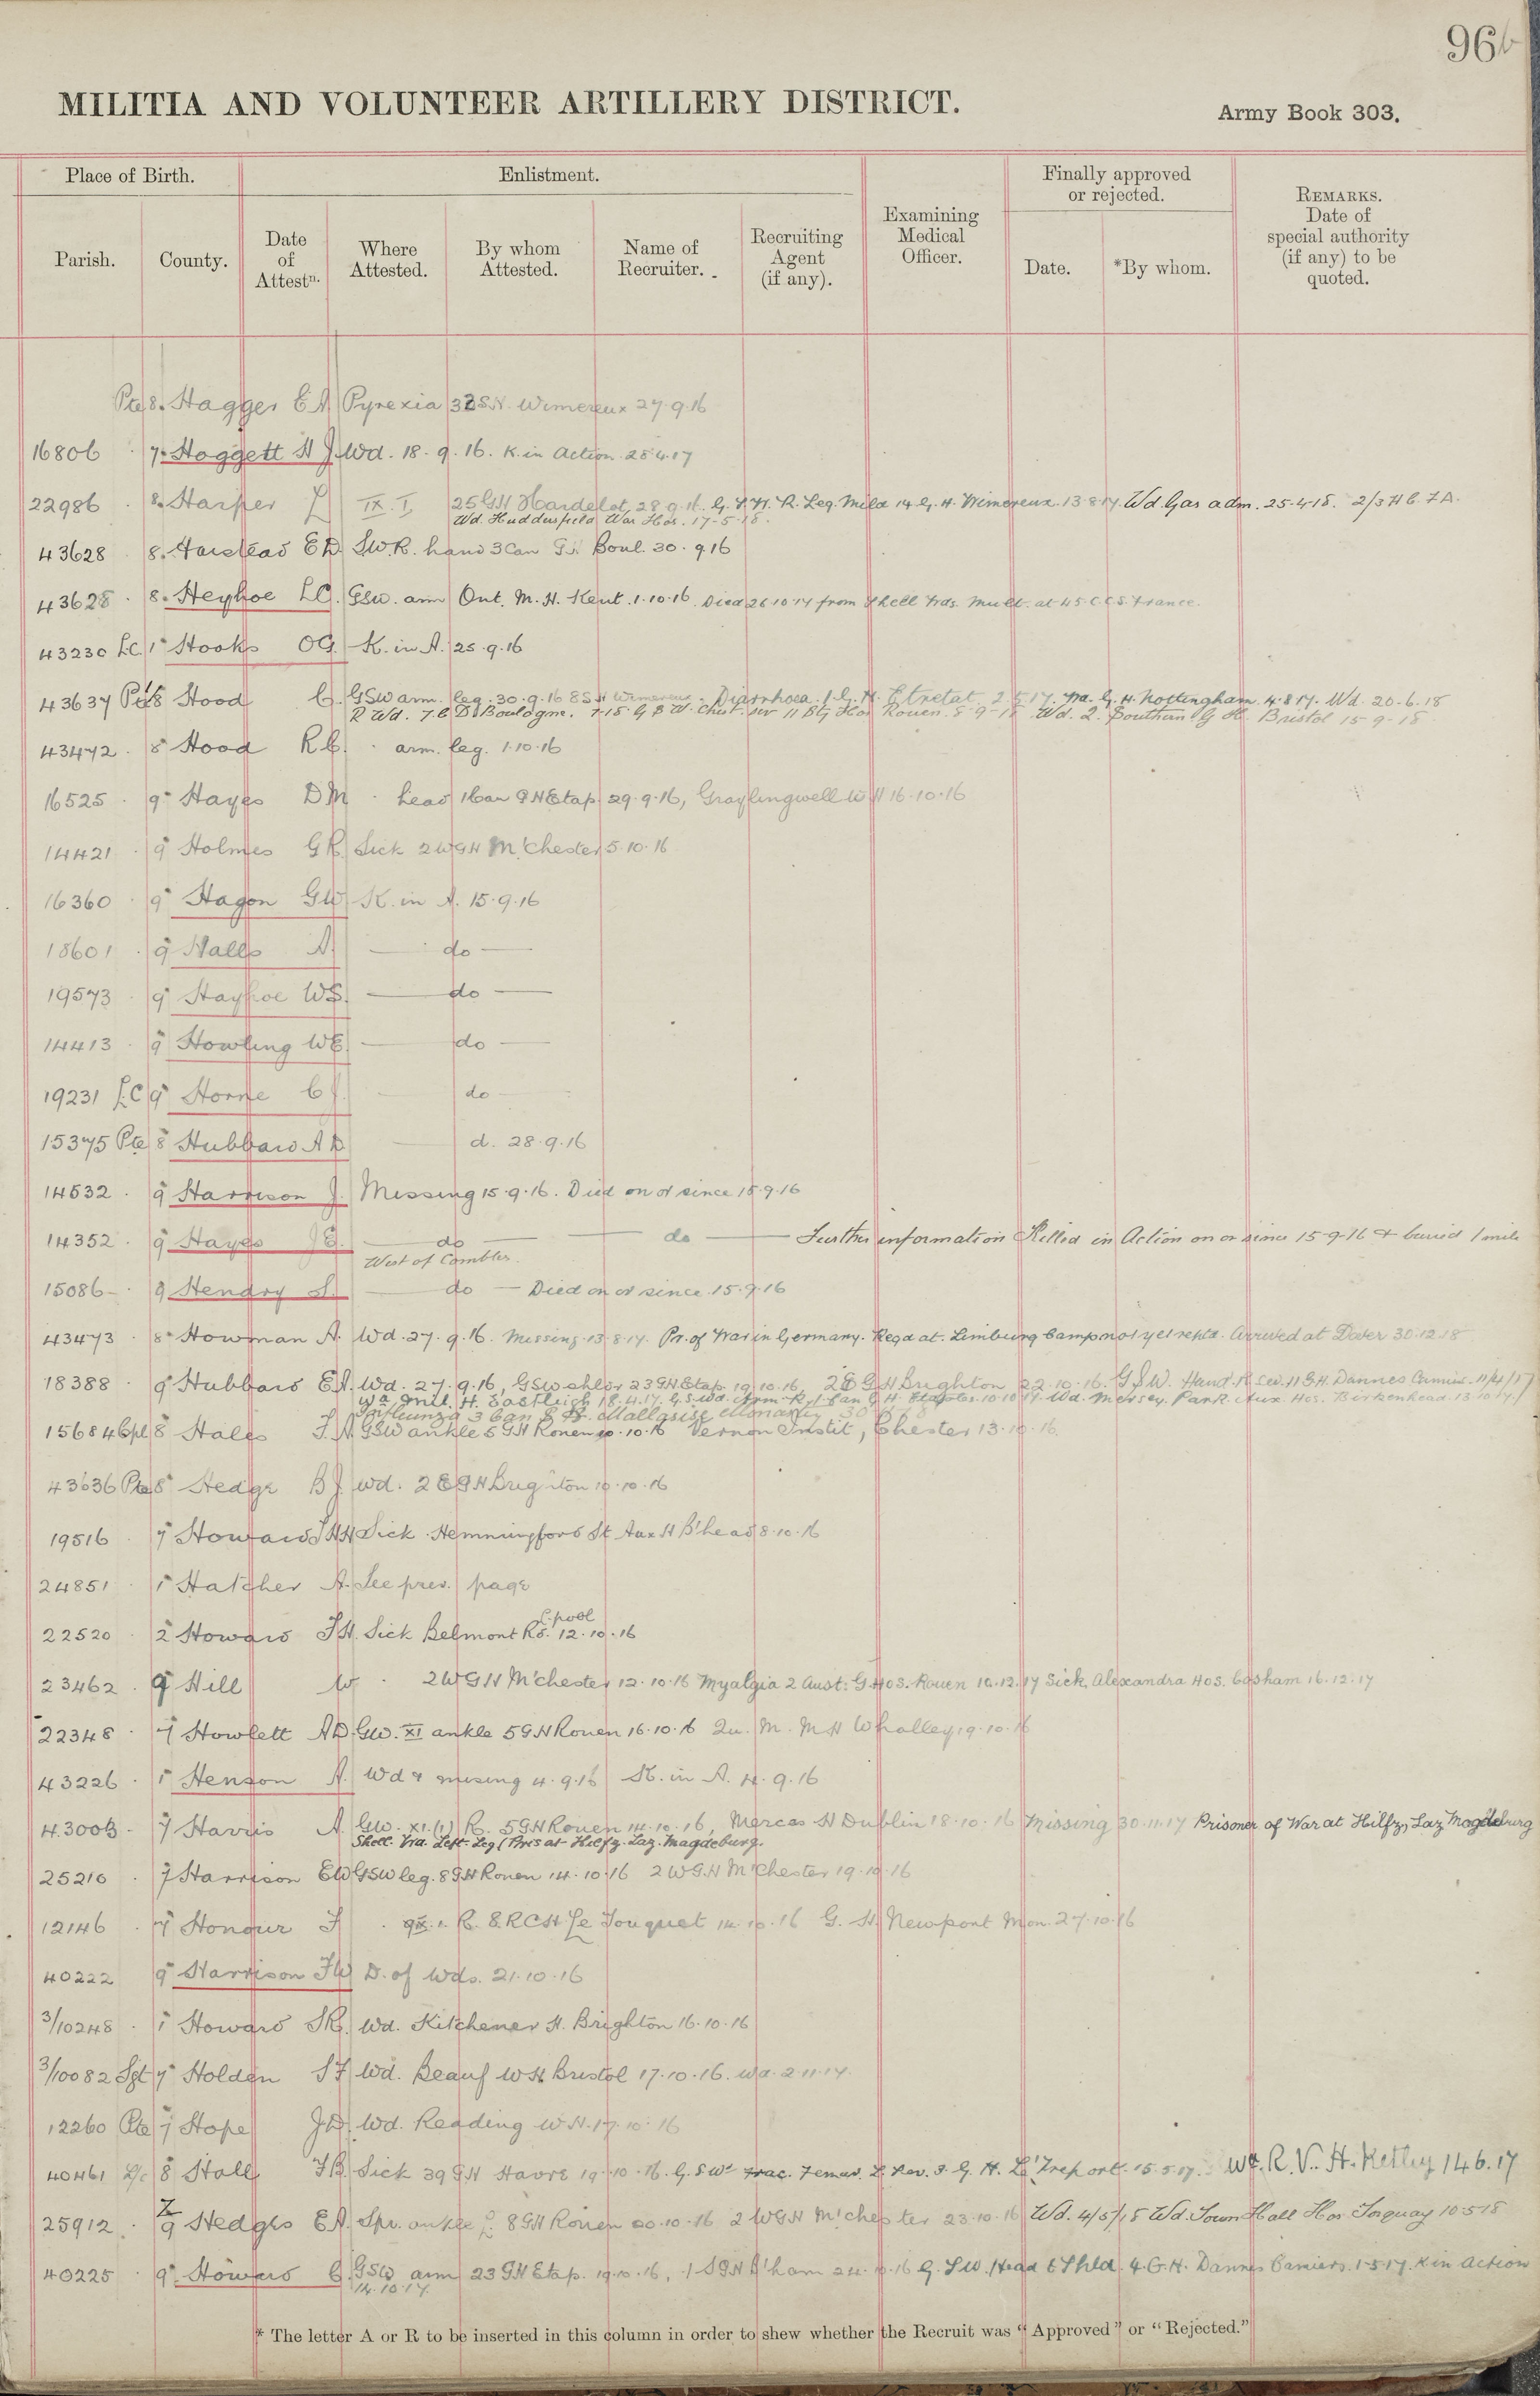 96b
MILITIA AND VOLUNTEER ARTILLERY DISTRICT.
Army Book 303.
Place of Birth.
Enlistment.
Finally approved or rejected.
Parish.
County.
Date of Attestn.
Where Attested.
By whom Attested.
Name of Recruiter.
Recruiting Agent (if any).
Examining Medical Officer.
Date.
*By whom.
REMARKS. Date of special authority (if any) to be quoted.
Pte 8. Hagger E A Pyrexia 32 S.H. Wimereux 27.9.16
16806 7. Hoggett H J. Wd. 18.9.16. K. in Action 28.4.17
22986 8. Harper IX. I, 25 GH Hardelot 28.9.16. G.S.W. R. Leg. Mild 14 G. H. Wimereux 13.8.17 Wd Gas adm. 25-4-18. 2/3 H C. F.A.
Wd. Huddersfield War Hos. 17-5-18.
43628 8. Harstead E D. S.W. R. hand 3 Can G.H. Boul. 30.9.16
43628 8. Heyhoe L C. GSW. arm Ont. M. H. Kent. 1.10.16 Died 26.10.17 from Shell Wds. Mult. at 45 C.C.S. France.
43230 L.C. 1 Hooks O G. K. in A. 25.9.16
43637 Pte 8 Hood C. GSW arm. leg. 30.9.16 8 S H Wimereux. Diarrhoea. 1 G. H. Etretat 2.5.17. Tra. G. H. Nottingham 4.8.17. Wd. 20-6-18
R Wd. 7 C D. Boulogne. 7-18. G S W. Chest. sv 11 Btg Hos Rouen. 8-9-18 Wd. 2. Southern G H. Bristol 15-9-18
43472 8 Hood R C. arm. leg. 1.10.16
16525 9 Hayes D M head 1 Can G H Etap 29.9.16, Graylingwell W H 16.10.16
14421 9 Holmes G R Sick 2 W G H M'chester 5.10.16
16360 9 Hagon G W K. in A. 15.9.16
18601 9 Halls A. do
19573 9 Hayhoe W S. do
14413 9 Howling W E do
19231 L.C 9 Horne C J. do
15375 Pte 8 Hubbard A D d. 28.9.16
14532 9 Harrison J. Missing 15.9.16. Died on or since 15.9.16
14352 9 Hayes J E. do do Further information Killed in Action on or since 15-9-16 & buried 1 mile
West of Combles.
15086 9 Hendry S. do Died on or since 15.9.16
43473 8 Howman A. Wd. 27.9.16. Missing 13.8.17. Pr. of War in Germany. Regd at. Limburg Camp not yet reptd. Arrived at Dover 30.12.18
18388 9 Hubbard E A. Wd. 27.9.16, GSW shldr 23 GH Etap 19.10.16, 2E G H Brighton 22.10.16. G.S.W. Hand. R. sev. 11 G.H. Dannes Camiers. 11/4/17
Wd. Mil. H. Eastleigh 18.4.17. G.S. Wd. Arm R. 1 Can G H Etaples 10.10.17. Wd. Mersey Park Aux Hos. Birkenhead 13.10.17.
Influenza 3 Can S H. Mallasise
15684 Cpl 8 Hales F. A GSW ankle 5 G H Rouen 10.10.16 Vernon Instit, Chester 13.10.16.
43636 Pte 8 Hedge B J. wd. 2 E G H Brighton 10.10.16
19516 7 Howard J H H Sick Hemmingford St Aux H B'head 8.10.16
24851 1 Hatcher A. See prev. page
22520 2 Howard J H. Sick Belmont Rd. L'pool 12.10.16
23462 9 Hill W 2 W G H M'chester 12.10.16 Myalgia 2 Aust: G Hos. Rouen 10.12.17 Sick, Alexandra Hos. Cosham 16.12.17
22348 7 Howlett A D. GW. XI ankle 5 G H Rouen 16.10.16 Qu. M. M H Whalley 19.10.16
43226 1 Henson A. Wd & missing 4.9.16 K. in A. 4.9.16
43003 7 Harris A. GW. XI. (1) R. 5 G H Rouen 14.10.16, Merces H Dublin 18.10.16 Missing 30.11.17 Prisoner of War at Hilfz, Laz Magdeburg
Shell Wd. Left Leg (Pris at Hilfz. Laz. Magdeburg.
25210 7 Harrison E W GSW leg. 8 G H Rouen 14.10.16 2 W G. H M'chester 19.10.16
12146 7 Honour F IX. R. 8 R C H Le Touquet 14.10.16 G. H. Newport Mon. 27.10.16
40222 9 Harrison F W D. of Wds. 21.10.16
3/10248 1 Howard S R. Wd. Kitchener H. Brighton 16.10.16
3/10082 Sgt 7 Holden S F Wd. Beauf W H Bristol 17.10.16. Wd. 2.11.17.
12260 Pte 7 Hope J D. Wd. Reading W H. 17.10.16
40461 L/c 8 Hall F B. Sick 39 G H Havre 19.10.16. G.S.W. Frac. Femur. L. sev. 3. G. H. Le Treport. 15.5.17. Wd. R. V. H. Netley 14.6.17
25912 7 9 Hedges E A. Spr. ankle L. 8 G H Rouen 20.10.16 2 W G H M'chester 23.10.16 Wd. 4/5/18 Wd. Town Hall Hos Torquay 10.5.18
40225 9 Howard C. GSW arm 23 G H Etap. 19.10.16, 1 S G H B'ham 24.10.16 G.S.W. Head & Shld. 4. G. H. Dannes Camiers. 1.5.17. K in Action
14.10.17.
* The letter A or R to be inserted in this column in order to shew whether the Recruit was "Approved" or "Rejected."